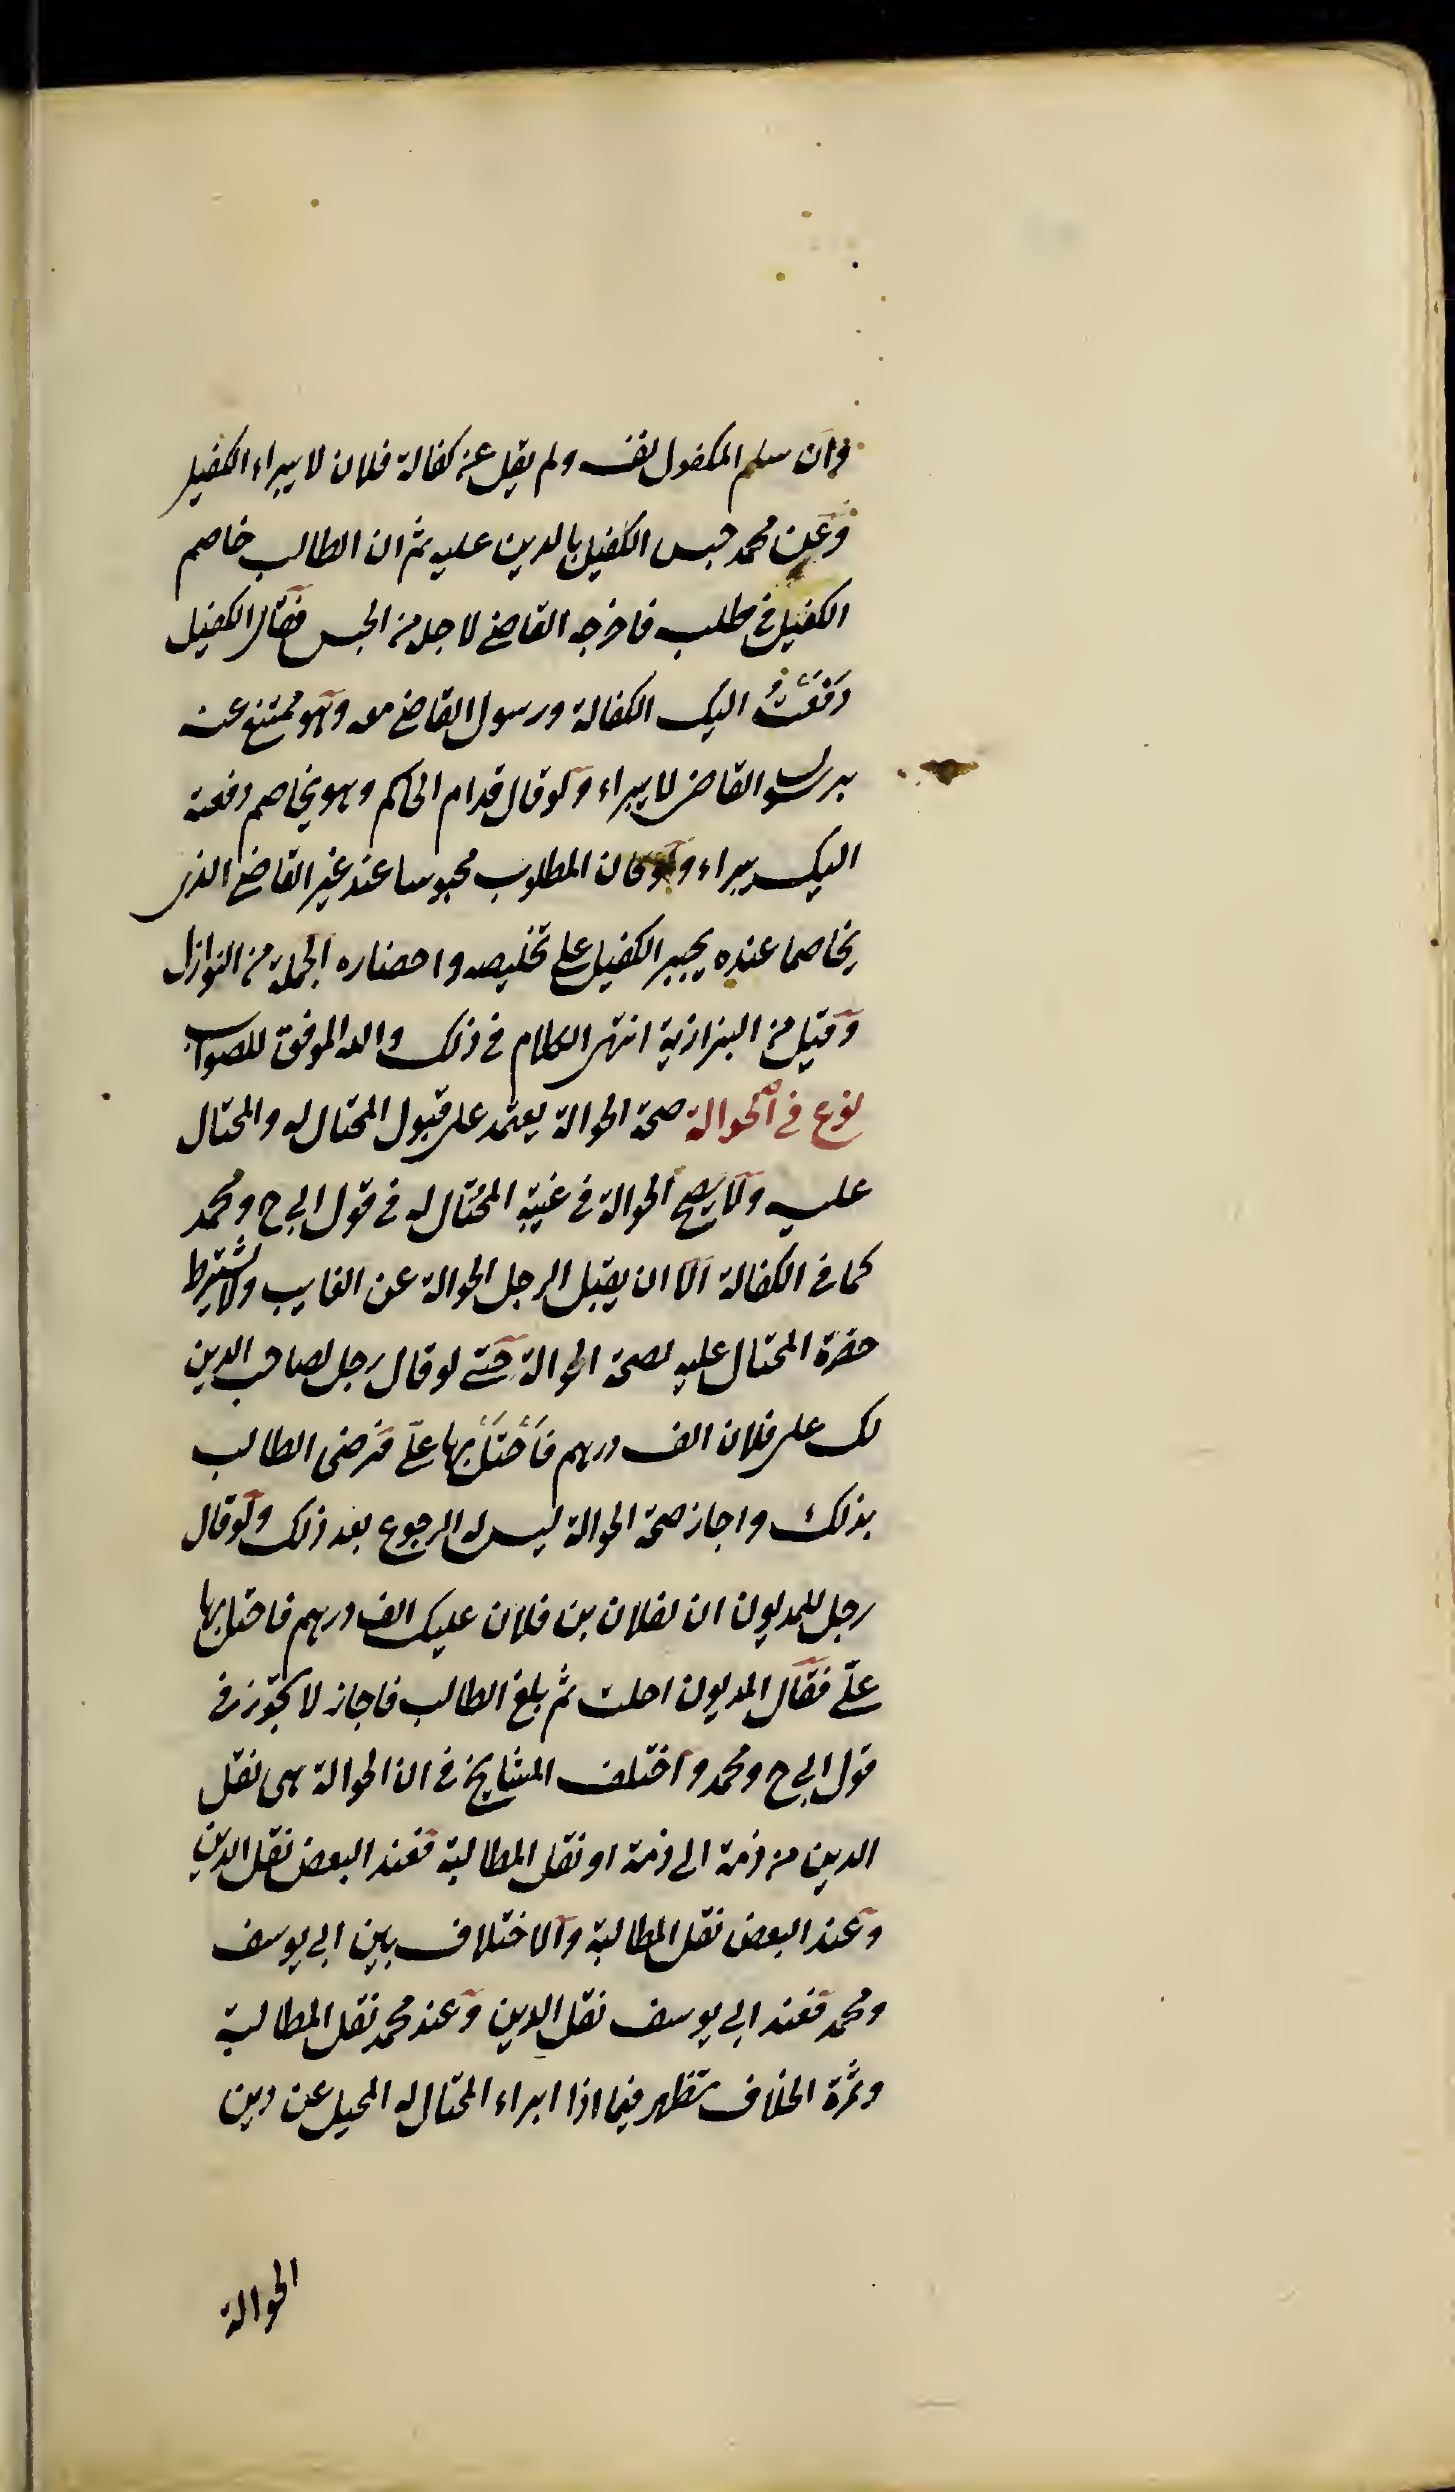 وان سلم المكفول نفسه ولم يقل عن كفالة فلان لا يبراء الكفيل
وعن محمد حبس الكفيل بالدين عليه ثم ان الطالب خاصم
الكفيل في طلبه فاخرجه القاضي لاجله من الحبس فقال الكفيل
دَفَعْتُ اليك الكفالة ورسول القاضي معه وهو ممتنع عنه
برسول القاضي لا يبراء ولو قال قدام الحاكم وهو يخاصم دفعته
اليك يبراء ولو كان المطلوب محبوسا عند غير القاضي الذي
يخاصما عنده يجبر الكفيل على تخليصه واحضاره الجملة من النوازل
وقيل من البزازية انتهى الكلام في ذلك والله الموفق للصواب
نوع في الحوالة صحة الحوالة يعتمد على قبول المحتال له والمحتال
عليه ولا يصح الحوالة في غيبة المحتال له في قول ابي ح ومحمد
كما في الكفالة الا ان يقبل الرجل الحوالة عن الغايب ولا يشترط
حضرة المحتال عليه لصحة الحوالة حتى لو قال رجل لصاحب الدين
لك على فلان الف درهم فَاَحْتَلْ بها علىّ فرضى الطالب
بذلك واجاز صحة الحوالة ليس له الرجوع بعد ذلك ولو قال
رجل للمديون ان لفلان بن فلان عليك الف درهم فاحتل بها
علىّ فقال المديون احلت ثم بلغ الطالب فاجاز لا يجوز في
قول ابي ح ومحمد واختلف المشايخ في ان الحوالة هى نقل
الدين من ذمة الى ذمة او نقل المطالبة فعند البعض نقل الدين
وعند البعض نقل المطالبة والاختلاف بين ابي يوسف
ومحمد فعند ابي يوسف نقل الدين وعند محمد نقل المطالبة
وثمرة الخلاف تظهر فيما اذا ابراء المحتال له المحيل عن دين
الحوالة